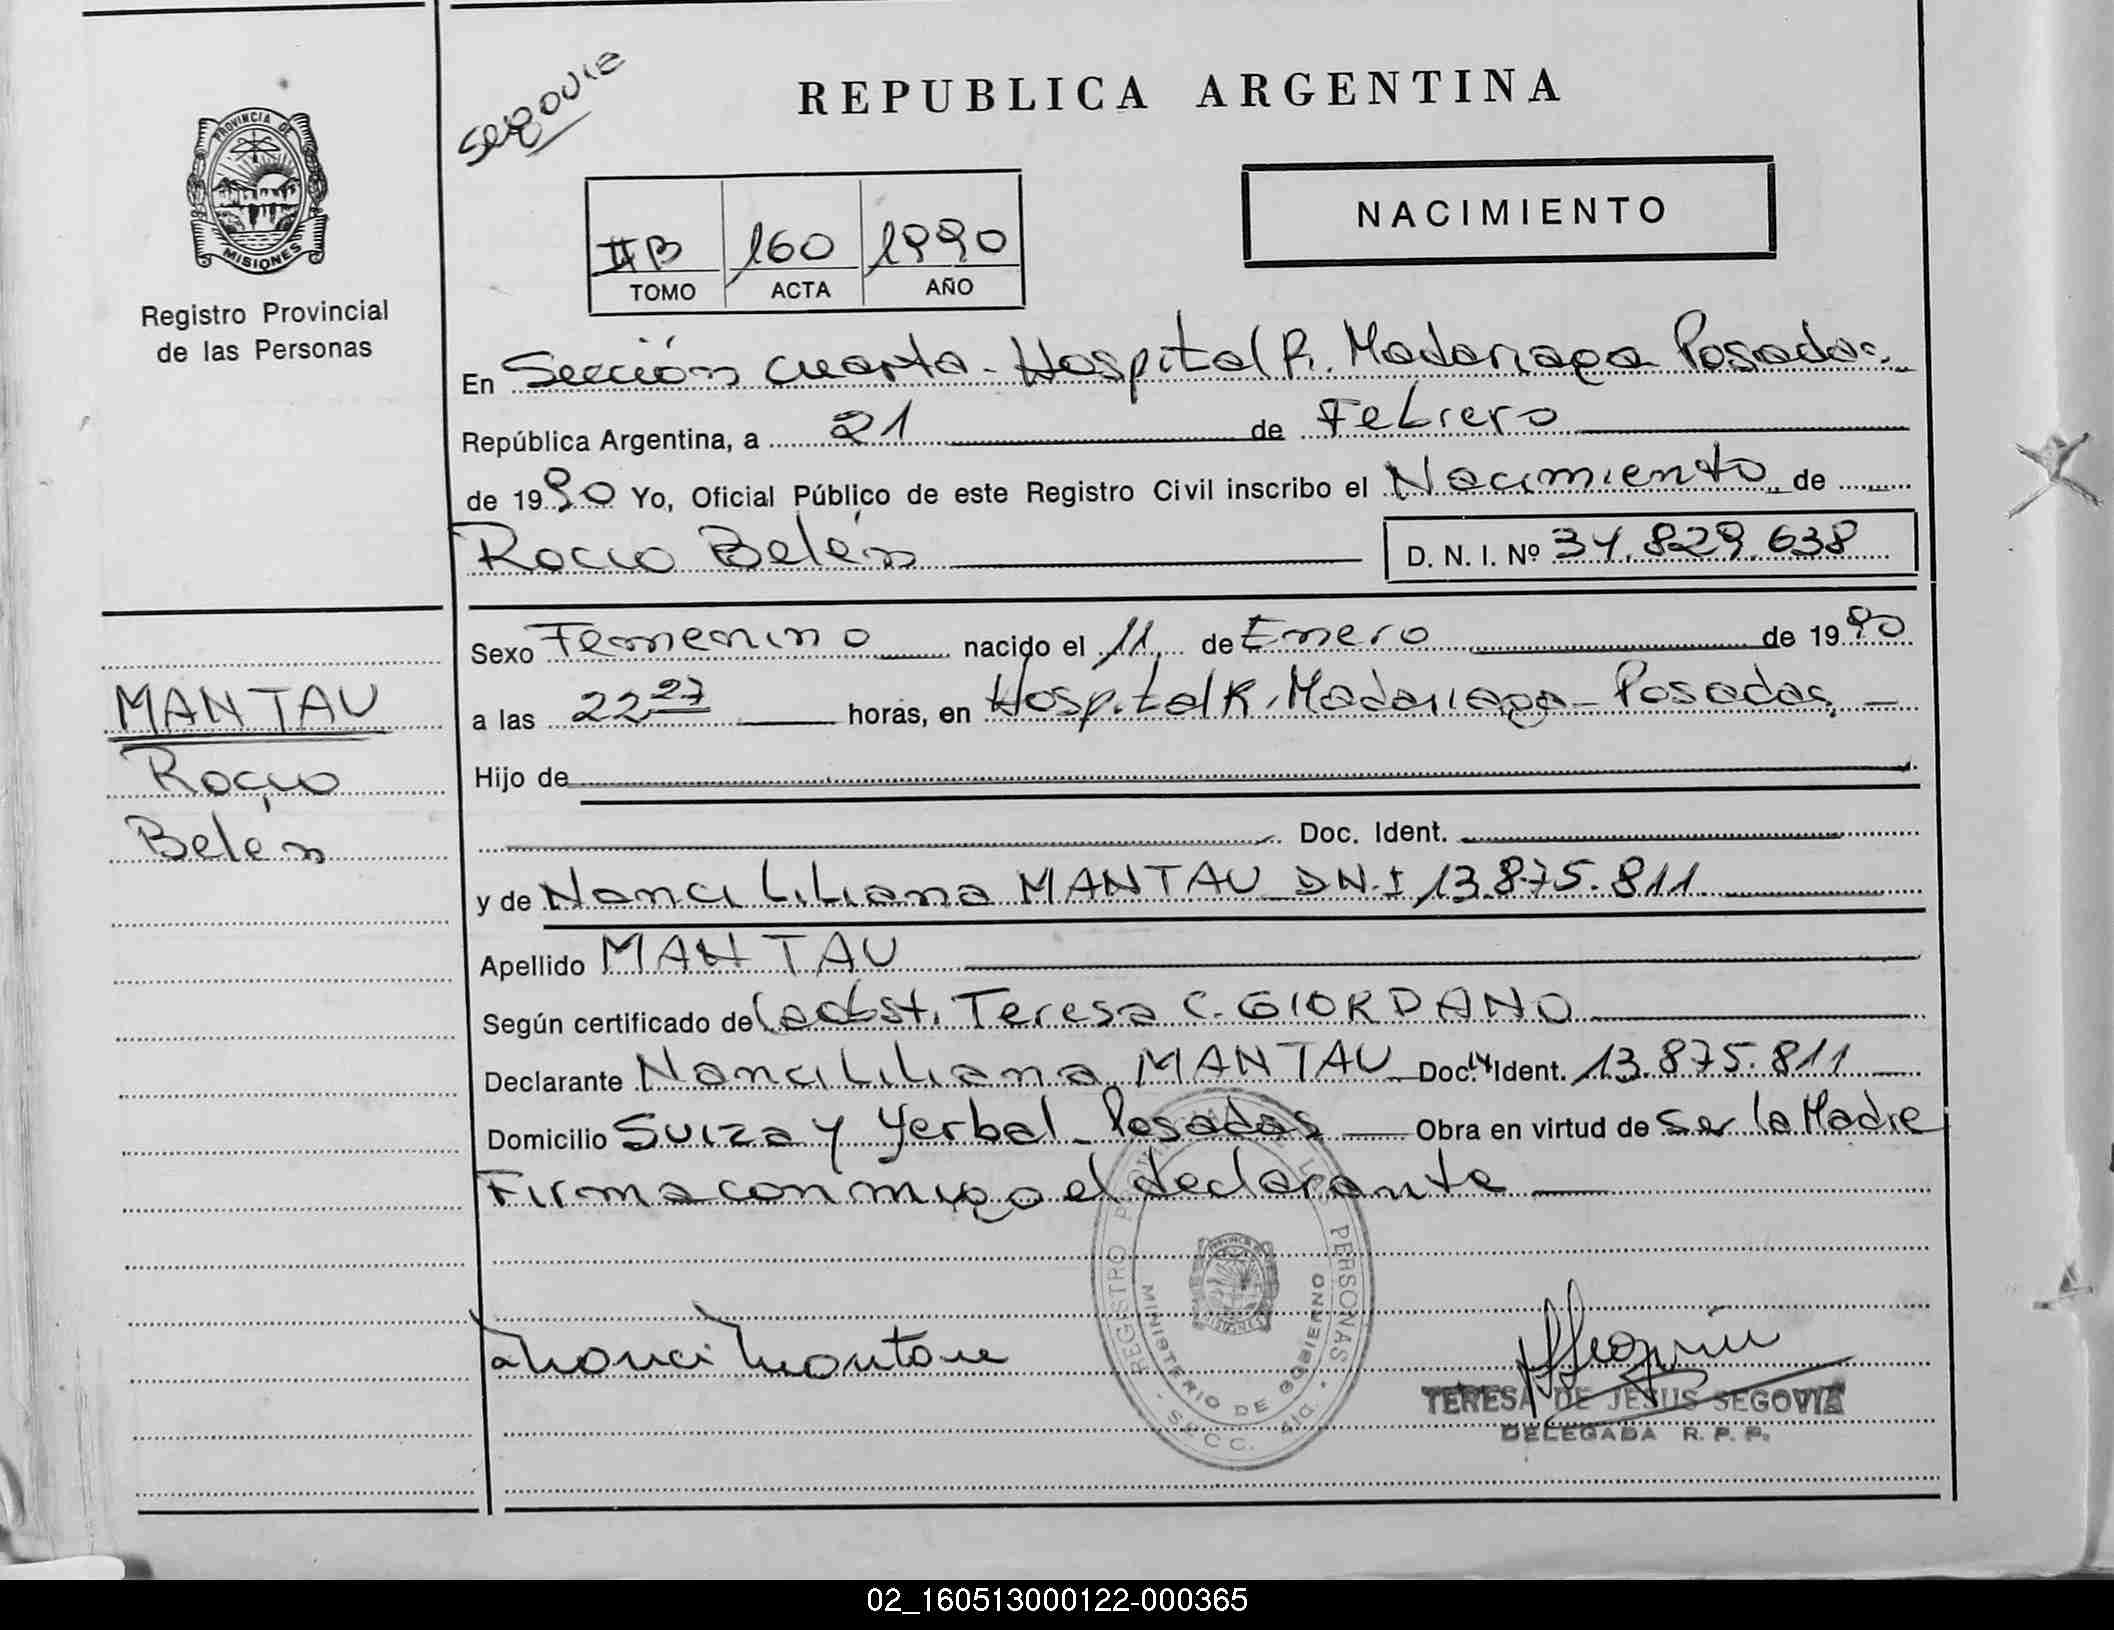 Segovia
REPUBLICA ARGENTINA
PROVINCIA DE
MISIONES
Registro Provincial
de las Personas
NACIMIENTO
IIB 160 1990
TOMO ACTA AÑO
En Sección cuarta - Hospital R. Madariaga Posadas.
República Argentina, a 21 de Febrero
de 1990 Yo, Oficial Público de este Registro Civil inscribo el Nacimiento de
Rocio Belén D. N. I. Nº 34.829.638
Sexo Femenino nacido el 11 de Enero de 1990
a las 22 27 horas, en Hospital R. Madariaga - Posadas. -
Hijo de
Doc. Ident.
y de Nanci Liliana MANTAU DN.I 13.875.811
Apellido MANTAU
Según certificado de La obst. Teresa C. GIORDANO
Declarante Nanci Liliana MANTAU Doc. Ident. 13.875.811
Domicilio Suiza y Yerbal - Posadas Obra en virtud de Ser la Madre
Firma con migo el declarante
MANTAU
Rocio
Belén
REGISTRO PROVINCIAL DE LAS PERSONAS
MINISTERIO DE GOBIERNO
SECC. 4ta.
TERESA DE JESUS SEGOVIA
DELEGADA R. P. P.
02_160513000122-000365